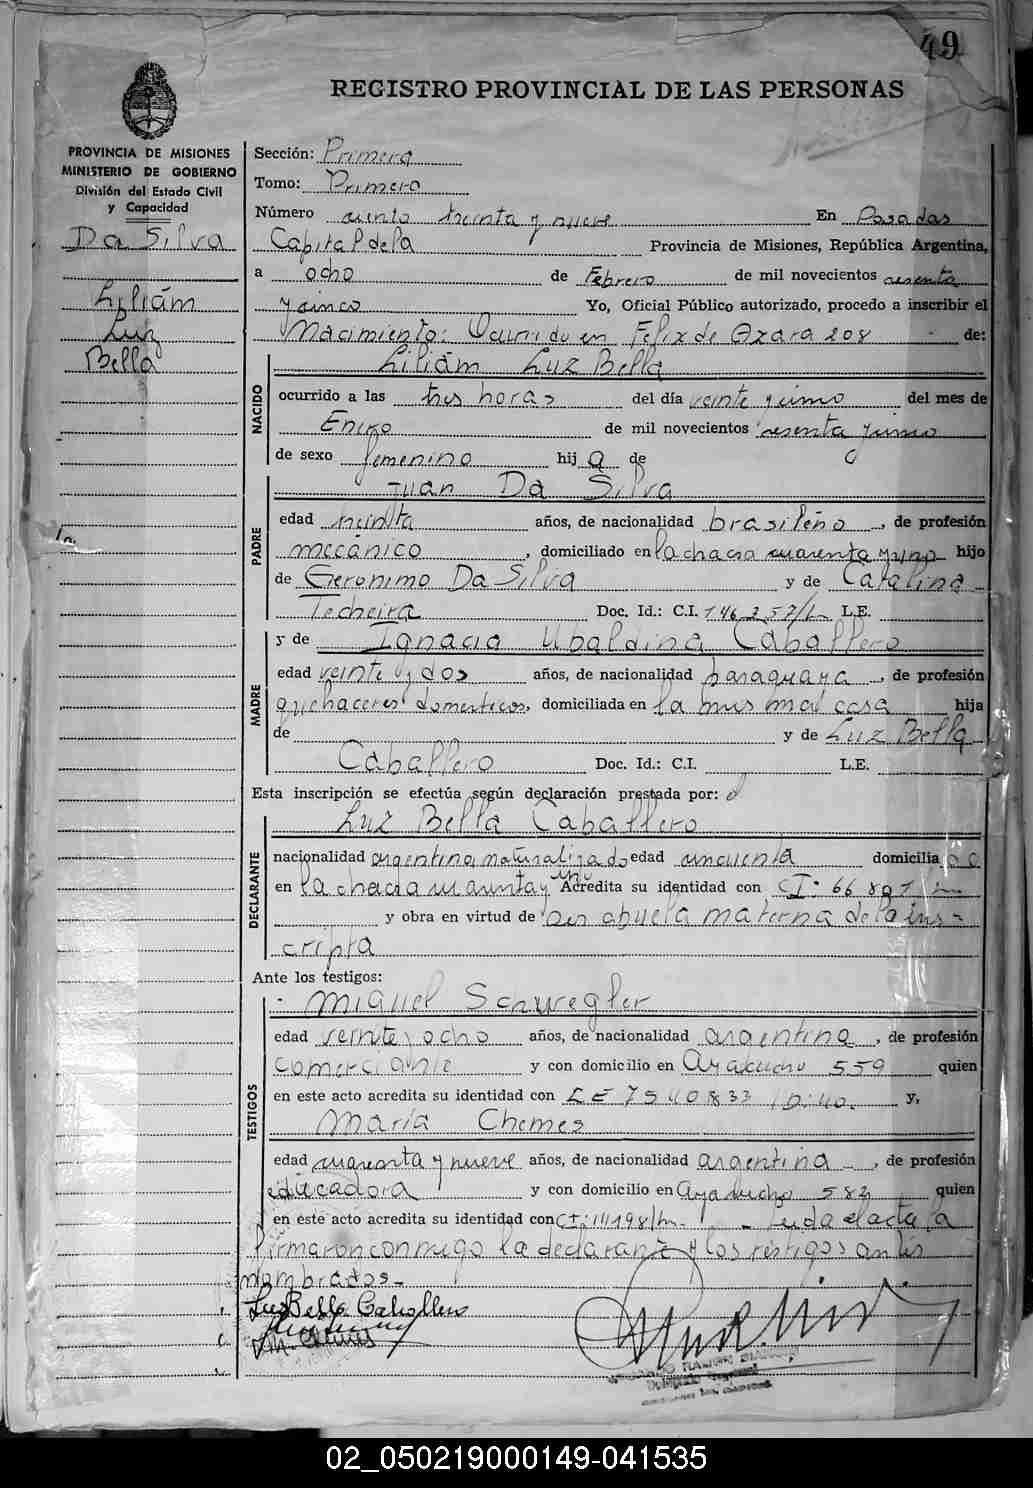 49
REGISTRO PROVINCIAL DE LAS PERSONAS
PROVINCIA DE MISIONES
MINISTERIO DE GOBIERNO
División del Estado Civil
y Capacidad
Da Silva
Liliám
Luz
Bella
Sección: Primera
Tomo: Primero
Número ciento treinta y nueve En Posadas
Capital de la Provincia de Misiones, República Argentina,
a ocho de Febrero de mil novecientos sesenta
y cinco Yo, Oficial Público autorizado, procedo a inscribir el
Nacimiento: Ocurrido en Felix de Azara 208 de:
NACIDO
Liliám Luz Bella
ocurrido a las tres horas del día veinte y cinco del mes de
Enero de mil novecientos sesenta y cinco
de sexo femenino hij a de
PADRE
Juan Da Silva
edad treinta años, de nacionalidad brasileño, de profesión
mecánico, domiciliado en la chacra cuarenta y uno hijo
de Geronimo Da Silva y de Catalina
Techeira Doc. Id.: C.I. 146.257/ L.E.
MADRE
y de Ignacia Ubaldina Caballero
edad veinte y dos años, de nacionalidad paraguaya, de profesión
quehaceres domesticos, domiciliada en la misma casa hija
de y de Luz Bella
Caballero Doc. Id.: C.I. L.E.
Esta inscripción se efectúa según declaración prestada por:
DECLARANTE
Luz Bella Caballero
nacionalidad argentina naturalizado edad cincuenta domicilia
en la chacra cuarenta y uno Acredita su identidad con CI: 66.807
y obra en virtud de ser abuela materna de la ins-
cripta
Ante los testigos:
TESTIGOS
Miguel Schwegler
edad veinte y ocho años, de nacionalidad argentina, de profesión
comerciante y con domicilio en Ayacucho 559 quien
en este acto acredita su identidad con LE 7540833 y,
María Chemes
edad cuarenta y nueve años, de nacionalidad argentina, de profesión
educadora y con domicilio en Ayacucho 582 quien
en este acto acredita su identidad con CI: 11198/ Leida el acta la
firmaron conmigo la declarante y los testigos antes
nombrados.-
Luz Bella Caballero
M. Chemes
02_050219000149-041535